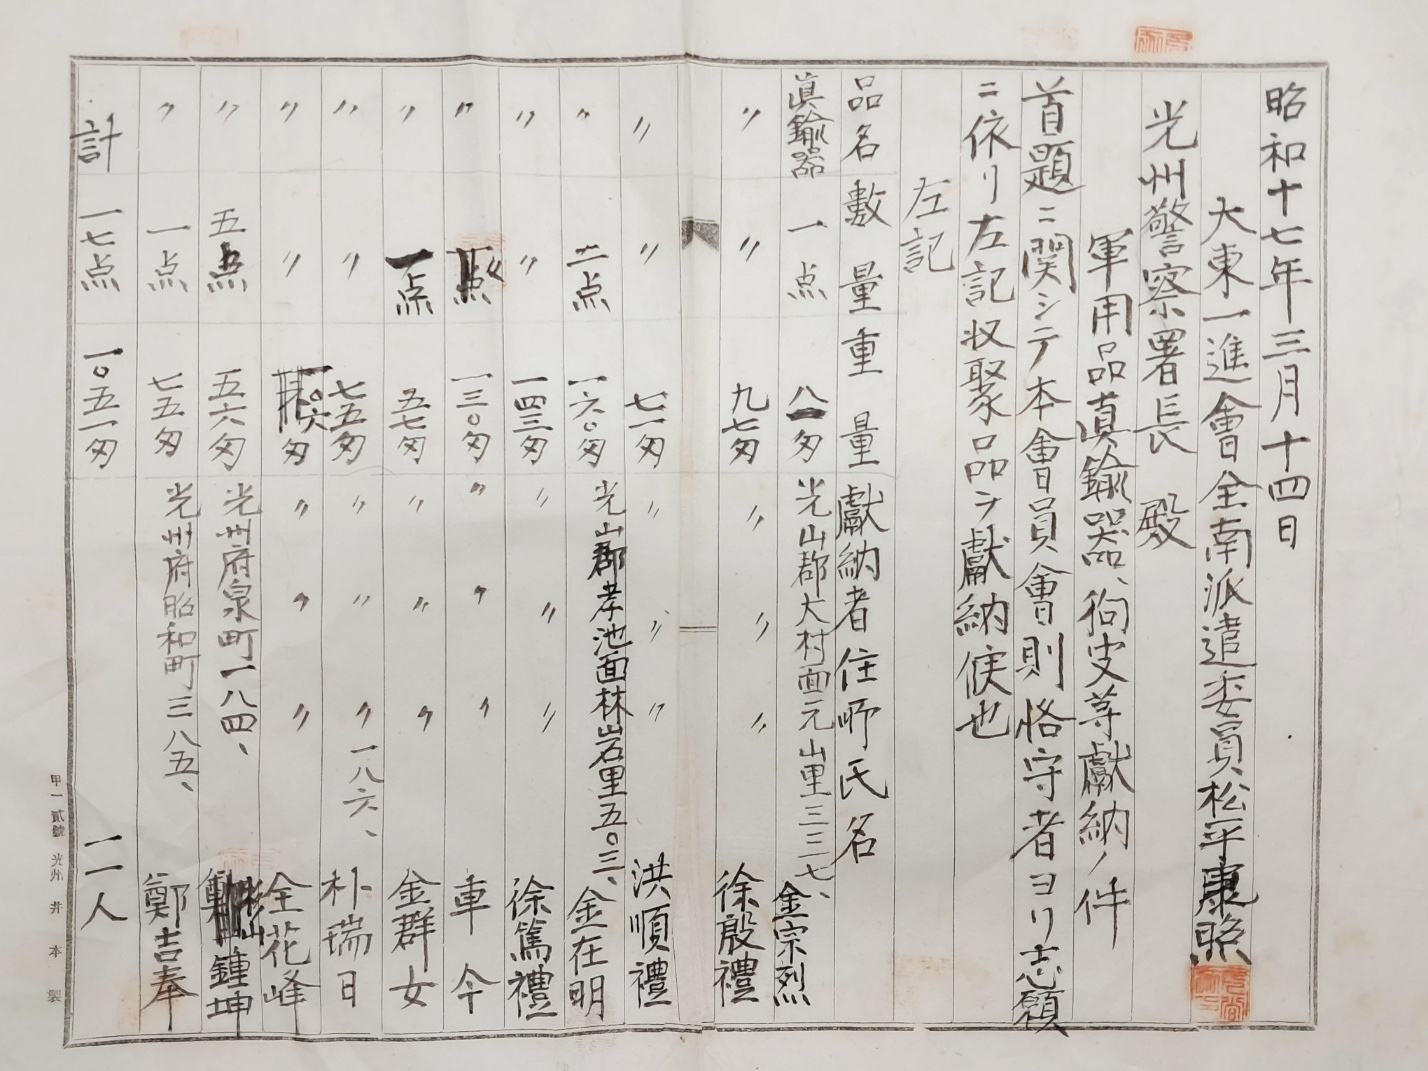 昭和十七年三月十四日
大東一進會全南派遣委員 松平康照
光州警察署長 殿
軍用品眞鍮器、狗皮等獻納ノ件
首題ニ関シテ本會員會則恪守者ヨリ志願
ニ依リ左記収聚品ヲ獻納候也
左記
品名 數量 重量 獻納者住所氏名
眞鍮器 一点 八一匁 光山郡大村面元山里三二七、 金宗烈
〃 〃 九七匁 〃 〃 〃 徐殷禮
〃 〃 七一匁 〃 〃 〃 洪順禮
〃 二点 一六〇匁 光山郡孝池面林岩里五〇三、 金在明
〃 〃 一四三匁 〃 〃 〃 徐篤禮
〃 点 一三〇匁 〃 〃 〃 車今
〃 一点 五七匁 〃 〃 〃 金群女
〃 〃 七五匁 〃 〃 〃 一八六、 朴瑞日
〃 〃 一〇六匁 〃 〃 〃 全花峰
〃 五点 五六匁 光州府泉町一八四、 鍾坤
〃 一点 七五匁 光州府昭和町三八五、 鄭吉奉
計 一七点 一〇五一匁 一一人
光州 井本製